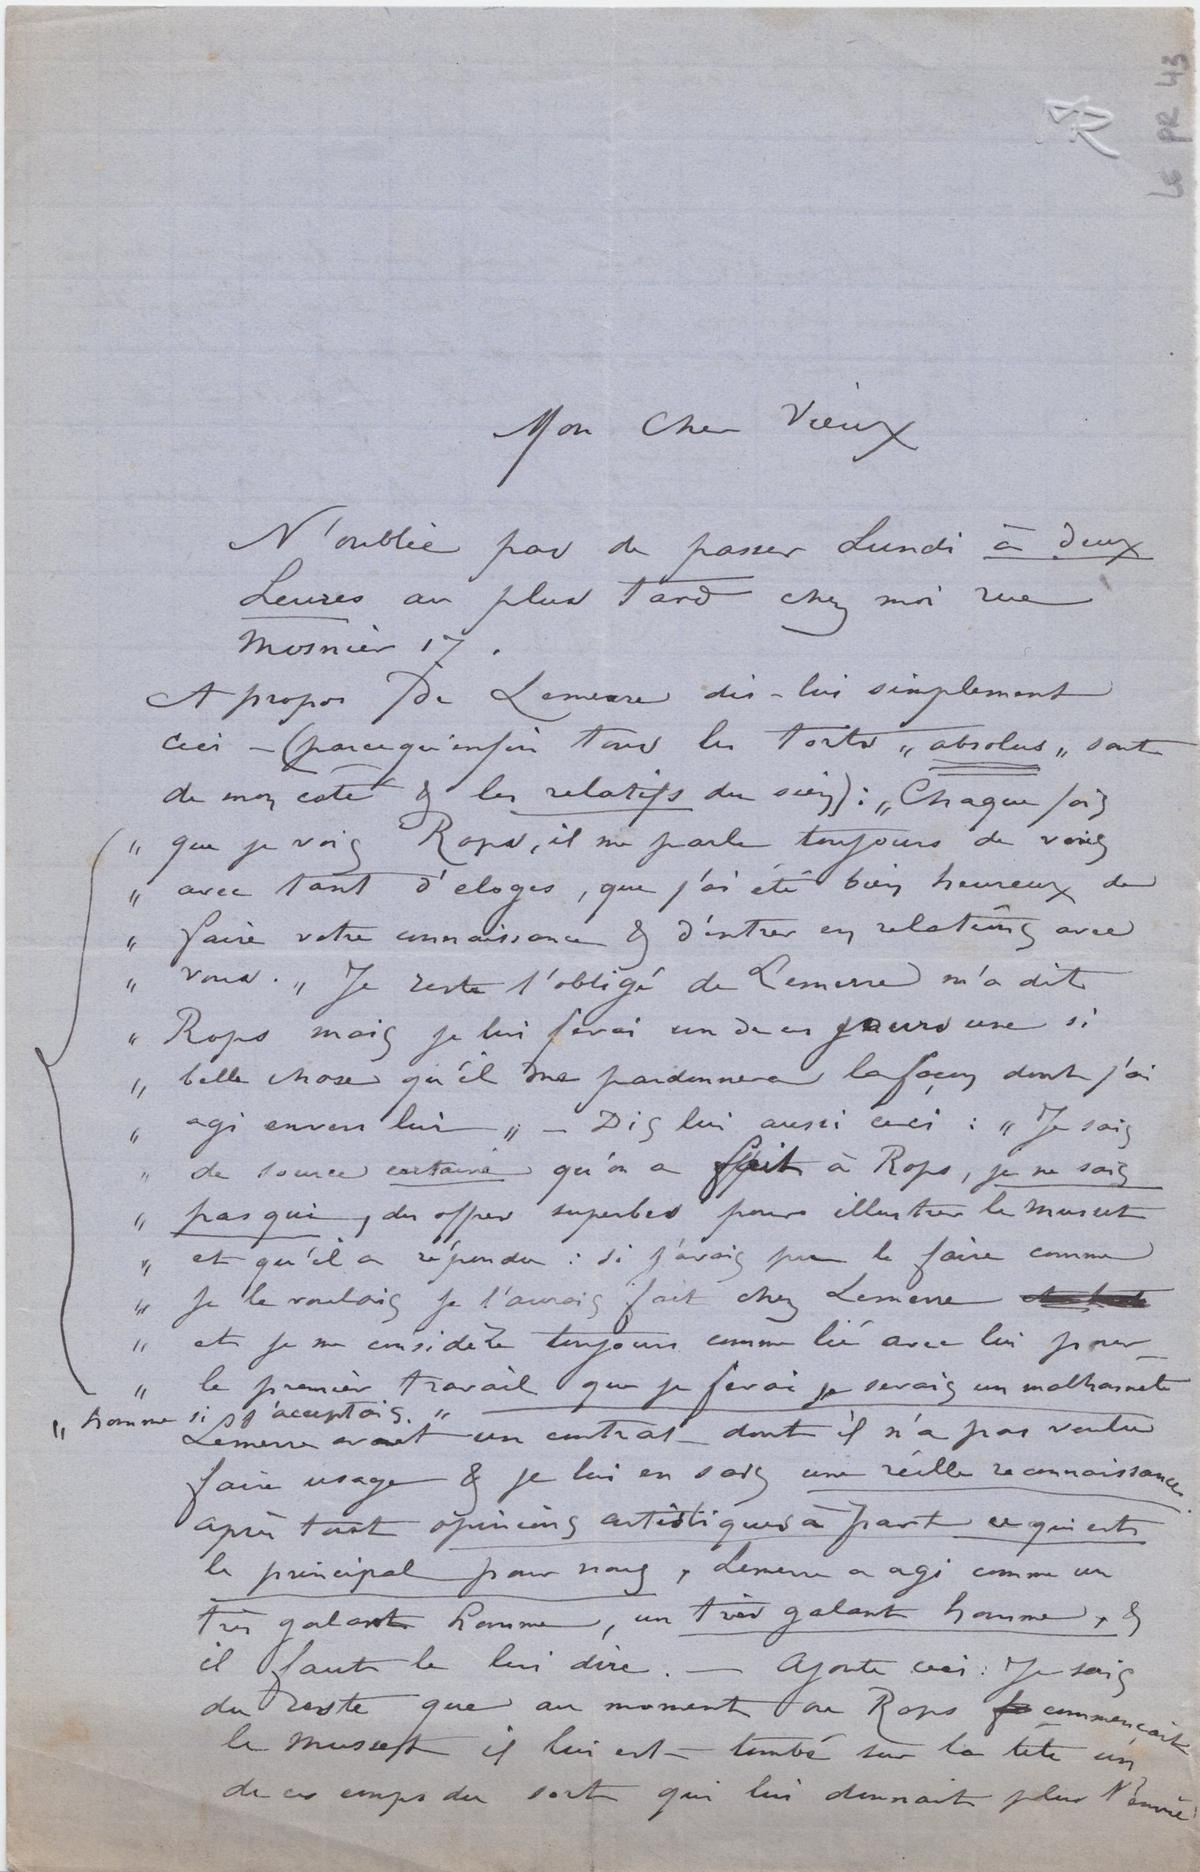 LE PR 43
R
Mon Cher Vieux
N'oublie pas de passer Lundi à deux
heures au plus tard chez moi rue
Mosnier 17.
A propos de Lemerre dis-lui simplement
ceci – (parcequ'enfin tous les torts „absolus„ sont
de mon coté & les relatifs du sien): „Chaque fois
„ que je vois Rops, il me parle toujours de vous
„ avec tant d'eloges, que j'ai été bien heureux de
„ faire votre connaissance & d'entrer en relations avec
„ vous. „ Je reste l'obligé de Lemerre m'a dit
„ Rops mais je lui ferai un de ces jours une si
„ belle chose qu'il me pardonnera la façon dont j'ai
„ agi envers lui „ – Dis lui aussi ceci : „ Je sais
„ de source certaine qu'on a fait à Rops, je ne sais
„ pas qui, des offres superbes pour illustrer le Musset
„ et qu'il a répondu : si j'avais pu le faire comme
„ je le voulais je l'aurais fait chez Lemerre
„ et je me considère toujours comme lié avec lui pour
„ le premier travail que je ferai je serais un malhonnete
„ homme si j'acceptais. „
Lemerre avait un contrat dont il n'a pas voulu
faire usage & je lui en sais une réelle reconnaissance.
après tout opinions artistiques à part ce qui est
le principal pour nous, Lemerre a agi comme un
très galant homme, un très galant homme, &
il faut le lui dire. — Ajoute ceci : Je sais
du reste que au moment ou Rops commencait
le Musset il lui est tombé sur la tête un
de ces coups du sort qui lui donnait plus l'envie